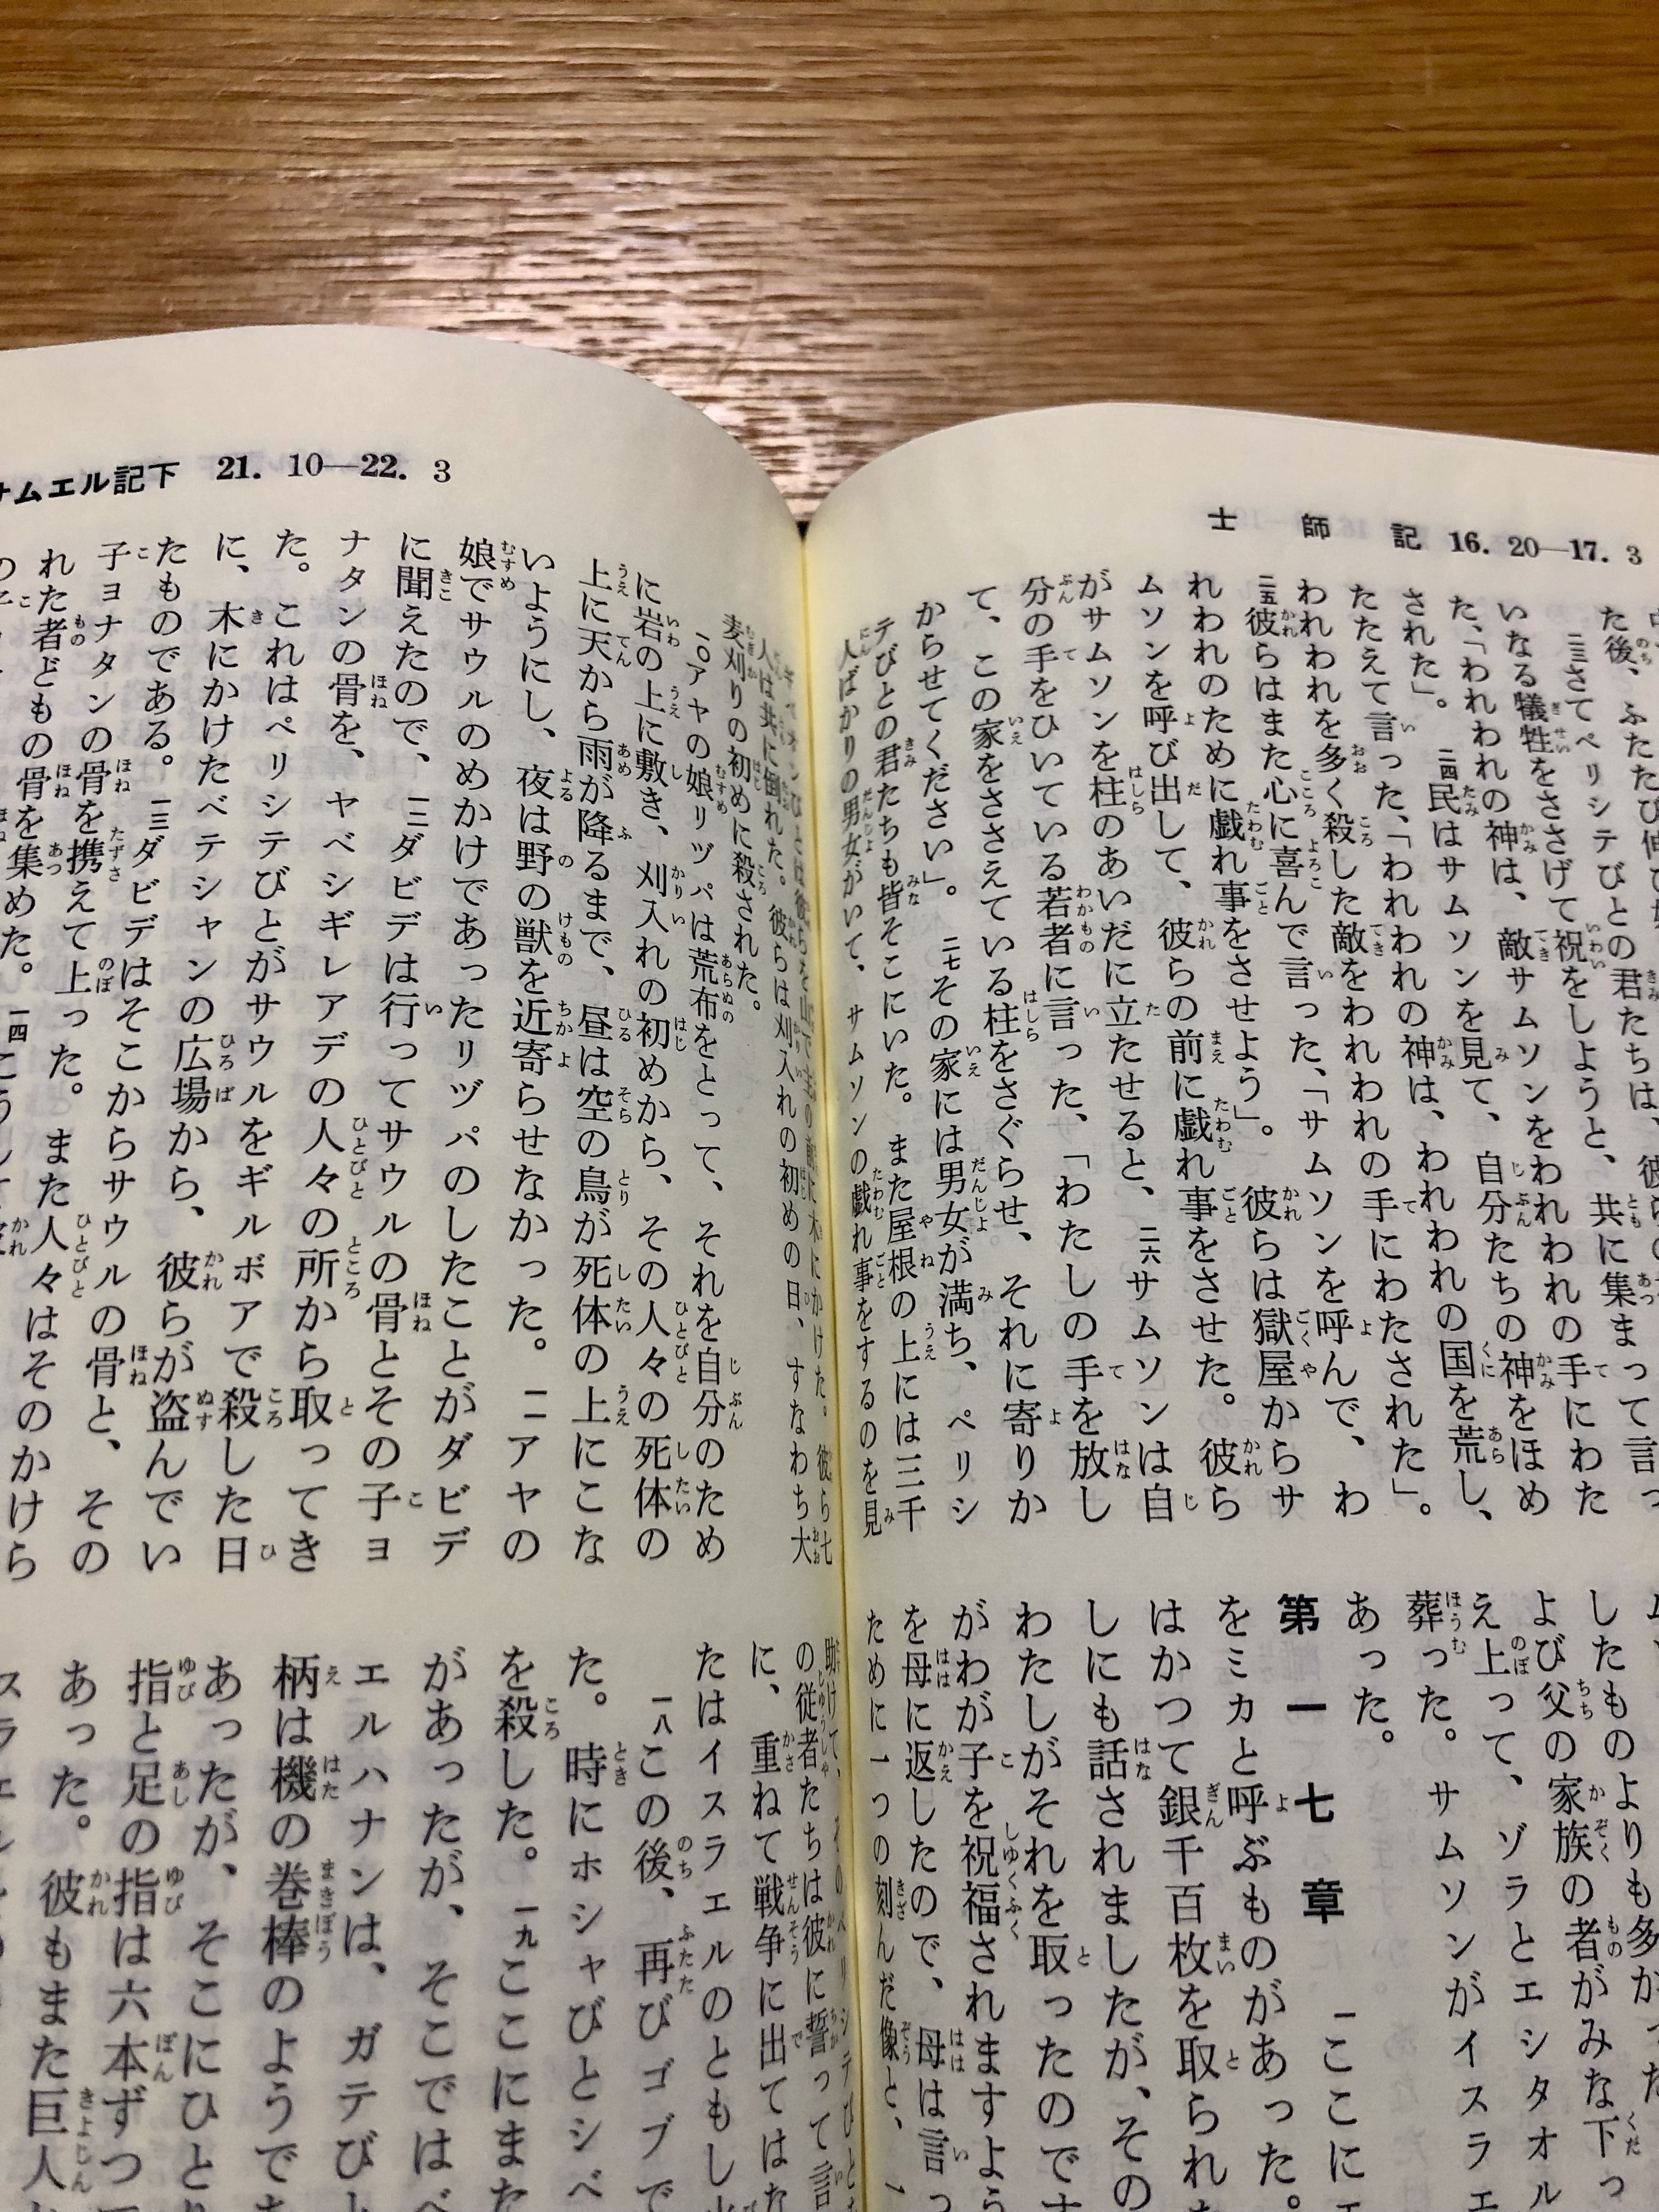 士師記 16. 20—17. 3
た後、ふたたび伸び
二三さてペリシテびとの君たちは、彼らの
いなる犠牲をささげて祝をしようと、共に集まって言っ
た、「われわれの神は、敵サムソンをわれわれの手にわた
された」。 二四民はサムソンを見て、自分たちの神をほめ
たたえて言った、「われわれの神は、われわれの国を荒し、
われわれを多く殺した敵をわれわれの手にわたされた」。
二五彼らはまた心に喜んで言った、「サムソンを呼んで、わ
れわれのために戯れ事をさせよう」。彼らは獄屋からサ
ムソンを呼び出して、彼らの前に戯れ事をさせた。彼ら
がサムソンを柱のあいだに立たせると、二六サムソンは自
分の手をひいている若者に言った、「わたしの手を放し
て、この家をささえている柱をさぐらせ、それに寄りか
からせてください」。 二七その家には男女が満ち、ペリシ
テびとの君たちも皆そこにいた。また屋根の上には三千
人ばかりの男女がいて、サムソンの戯れ事をするのを見
したものよりも多かった
よび父の家族の者がみな下っ
え上って、ゾラとエシタオル
葬った。サムソンがイスラエ
あった。
第一七章 一ここにエ
をミカと呼ぶものがあった。
はかつて銀千百枚を取られ
しにも話されましたが、その
わたしがそれを取ったのです
がわが子を祝福されますよう
を母に返したので、母は言っ
ために一つの刻んだ像と、一
サムエル記下 21. 10—22. 3
人は共に倒れた。彼らは刈入れの初めの日、すなわち大
麦刈りの初めに殺された。
一〇アヤの娘リヅパは荒布をとって、それを自分のため
に岩の上に敷き、刈入れの初めから、その人々の死体の
上に天から雨が降るまで、昼は空の鳥が死体の上にこな
いようにし、夜は野の獣を近寄らせなかった。 一一アヤの
娘でサウルのめかけであったリヅパのしたことがダビデ
に聞えたので、 一二ダビデは行ってサウルの骨とその子ヨ
ナタンの骨を、ヤベシギレアデの人々の所から取ってき
た。これはペリシテびとがサウルをギルボアで殺した日
に、木にかけたベテシャンの広場から、彼らが盗んでい
たものである。 一三ダビデはそこからサウルの骨と、その
子ヨナタンの骨を携えて上った。また人々はそのかけら
れた者どもの骨を集めた。 一四こうして
の従者たちは彼に誓って言
に、重ねて戦争に出てはな
たはイスラエルのともし火
一八この後、再びゴブで
た。時にホシャびとシベ
を殺した。 一九ここにまた
があったが、そこではベ
エルハナンは、ガテびと
柄は機の巻棒のようであ
あったが、そこにひとり
指と足の指は六本ずつで
あった。彼もまた巨人か